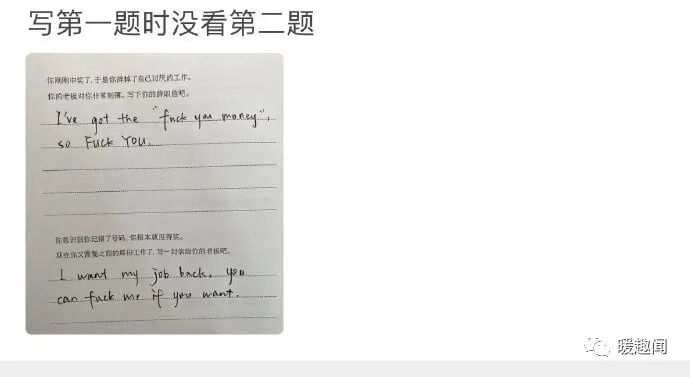 写第一题时没看第二题
你刚刚中奖了,于是你辞掉了自己讨厌的工作。
你的老板对你非常刻薄。写下你的辞职信吧。
I've got the "fuck you money",
so FUCK YOU.
你意识到你记错了号码,你根本就没得奖。
现在你又需要之前的那份工作了,写一封信给你的老板吧。
I want my job back, you
can fuck me if you want.
暖趣闻